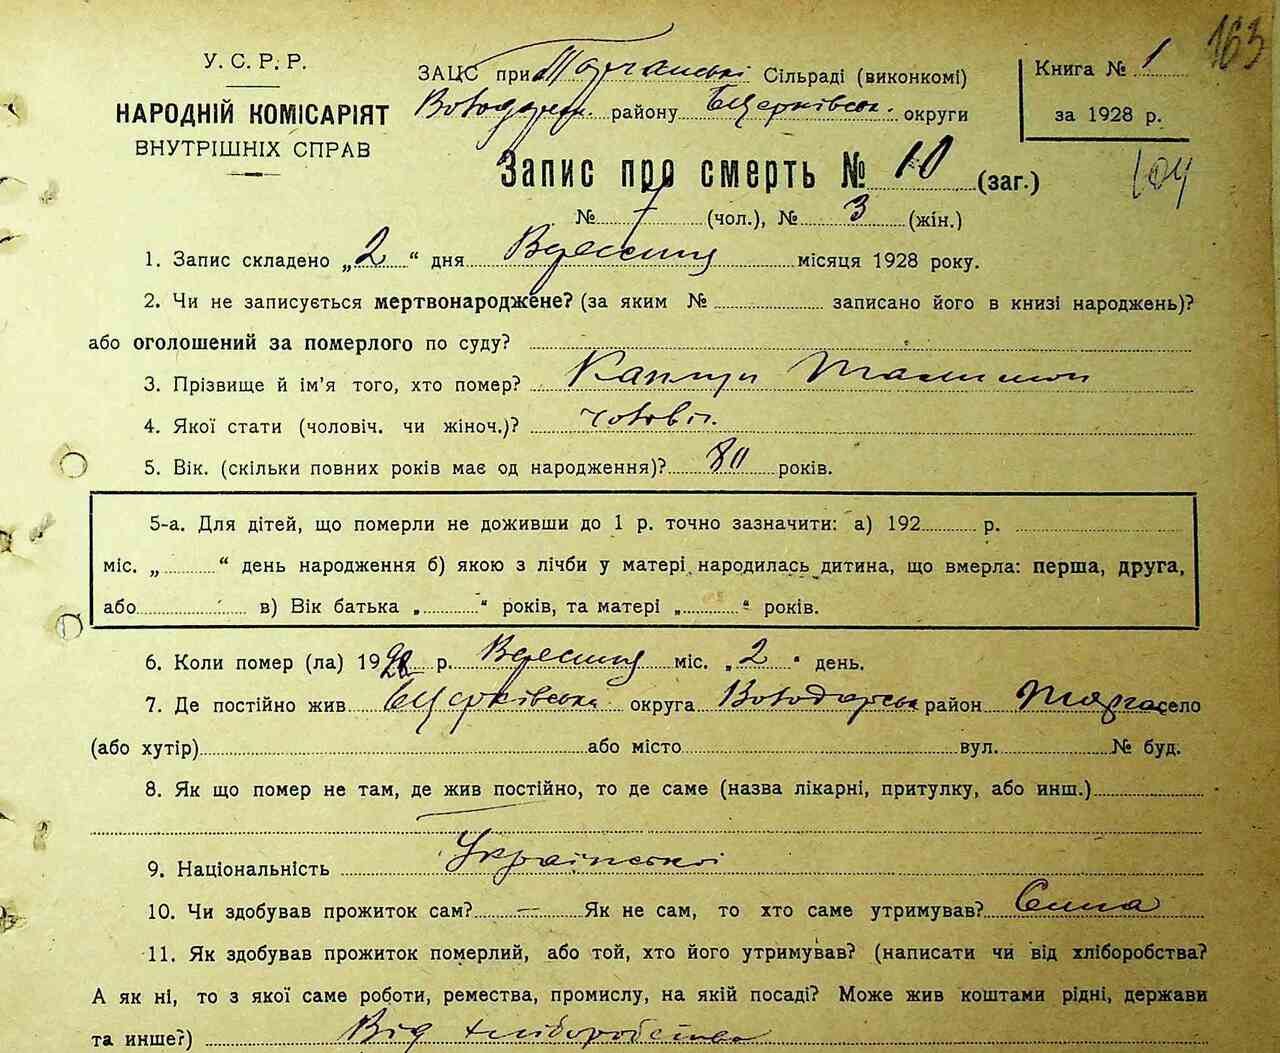 163
У. С. Р. Р.
НАРОДНІЙ КОМІСАРІЯТ
ВНУТРІШНІХ СПРАВ
ЗАЦС при Торчанські Сільраді (виконкомі)
Володарськ. району Бцерківськ. округи
Книга № 1
за 1928 р.
104
Запис про смерть № 10 (заг.)
№ 7 (чол.), № 3 (жін.)
1. Запис складено „2“ дня Вересня місяця 1928 року.
2. Чи не записується мертвонароджене? (за яким № записано його в книзі народжень)?
або оголошений за померлого по суду?
3. Прізвище й ім'я того, хто помер?
4. Якої стати (чоловіч. чи жіноч.)? чоловіч.
5. Вік. (скільки повних років має од народження)? 80 років.
5-а. Для дітей, що померли не доживши до 1 р. точно зазначити: а) 192 р.
міс. „ “ день народження б) якою з лічби у матері народилась дитина, що вмерла: перша, друга,
або в) Вік батька „ “ років, та матері „ “ років.
6. Коли помер (ла) 1928 р. Вересня міс. „2“ день.
7. Де постійно жив Бцерківська округа Володарськ район село
(або хутір) або місто вул. № буд.
8. Як що помер не там, де жив постійно, то де саме (назва лікарні, притулку, або инш.)
9. Національність Українській
10. Чи здобував прожиток сам? — Як не сам, то хто саме утримував? Сина
11. Як здобував прожиток померлий, або той, хто його утримував? (написати чи від хліборобства?
А як ні, то з якої саме роботи, ремества, промислу, на якій посаді? Може жив коштами рідні, держави
та инше?) Від хліборобства